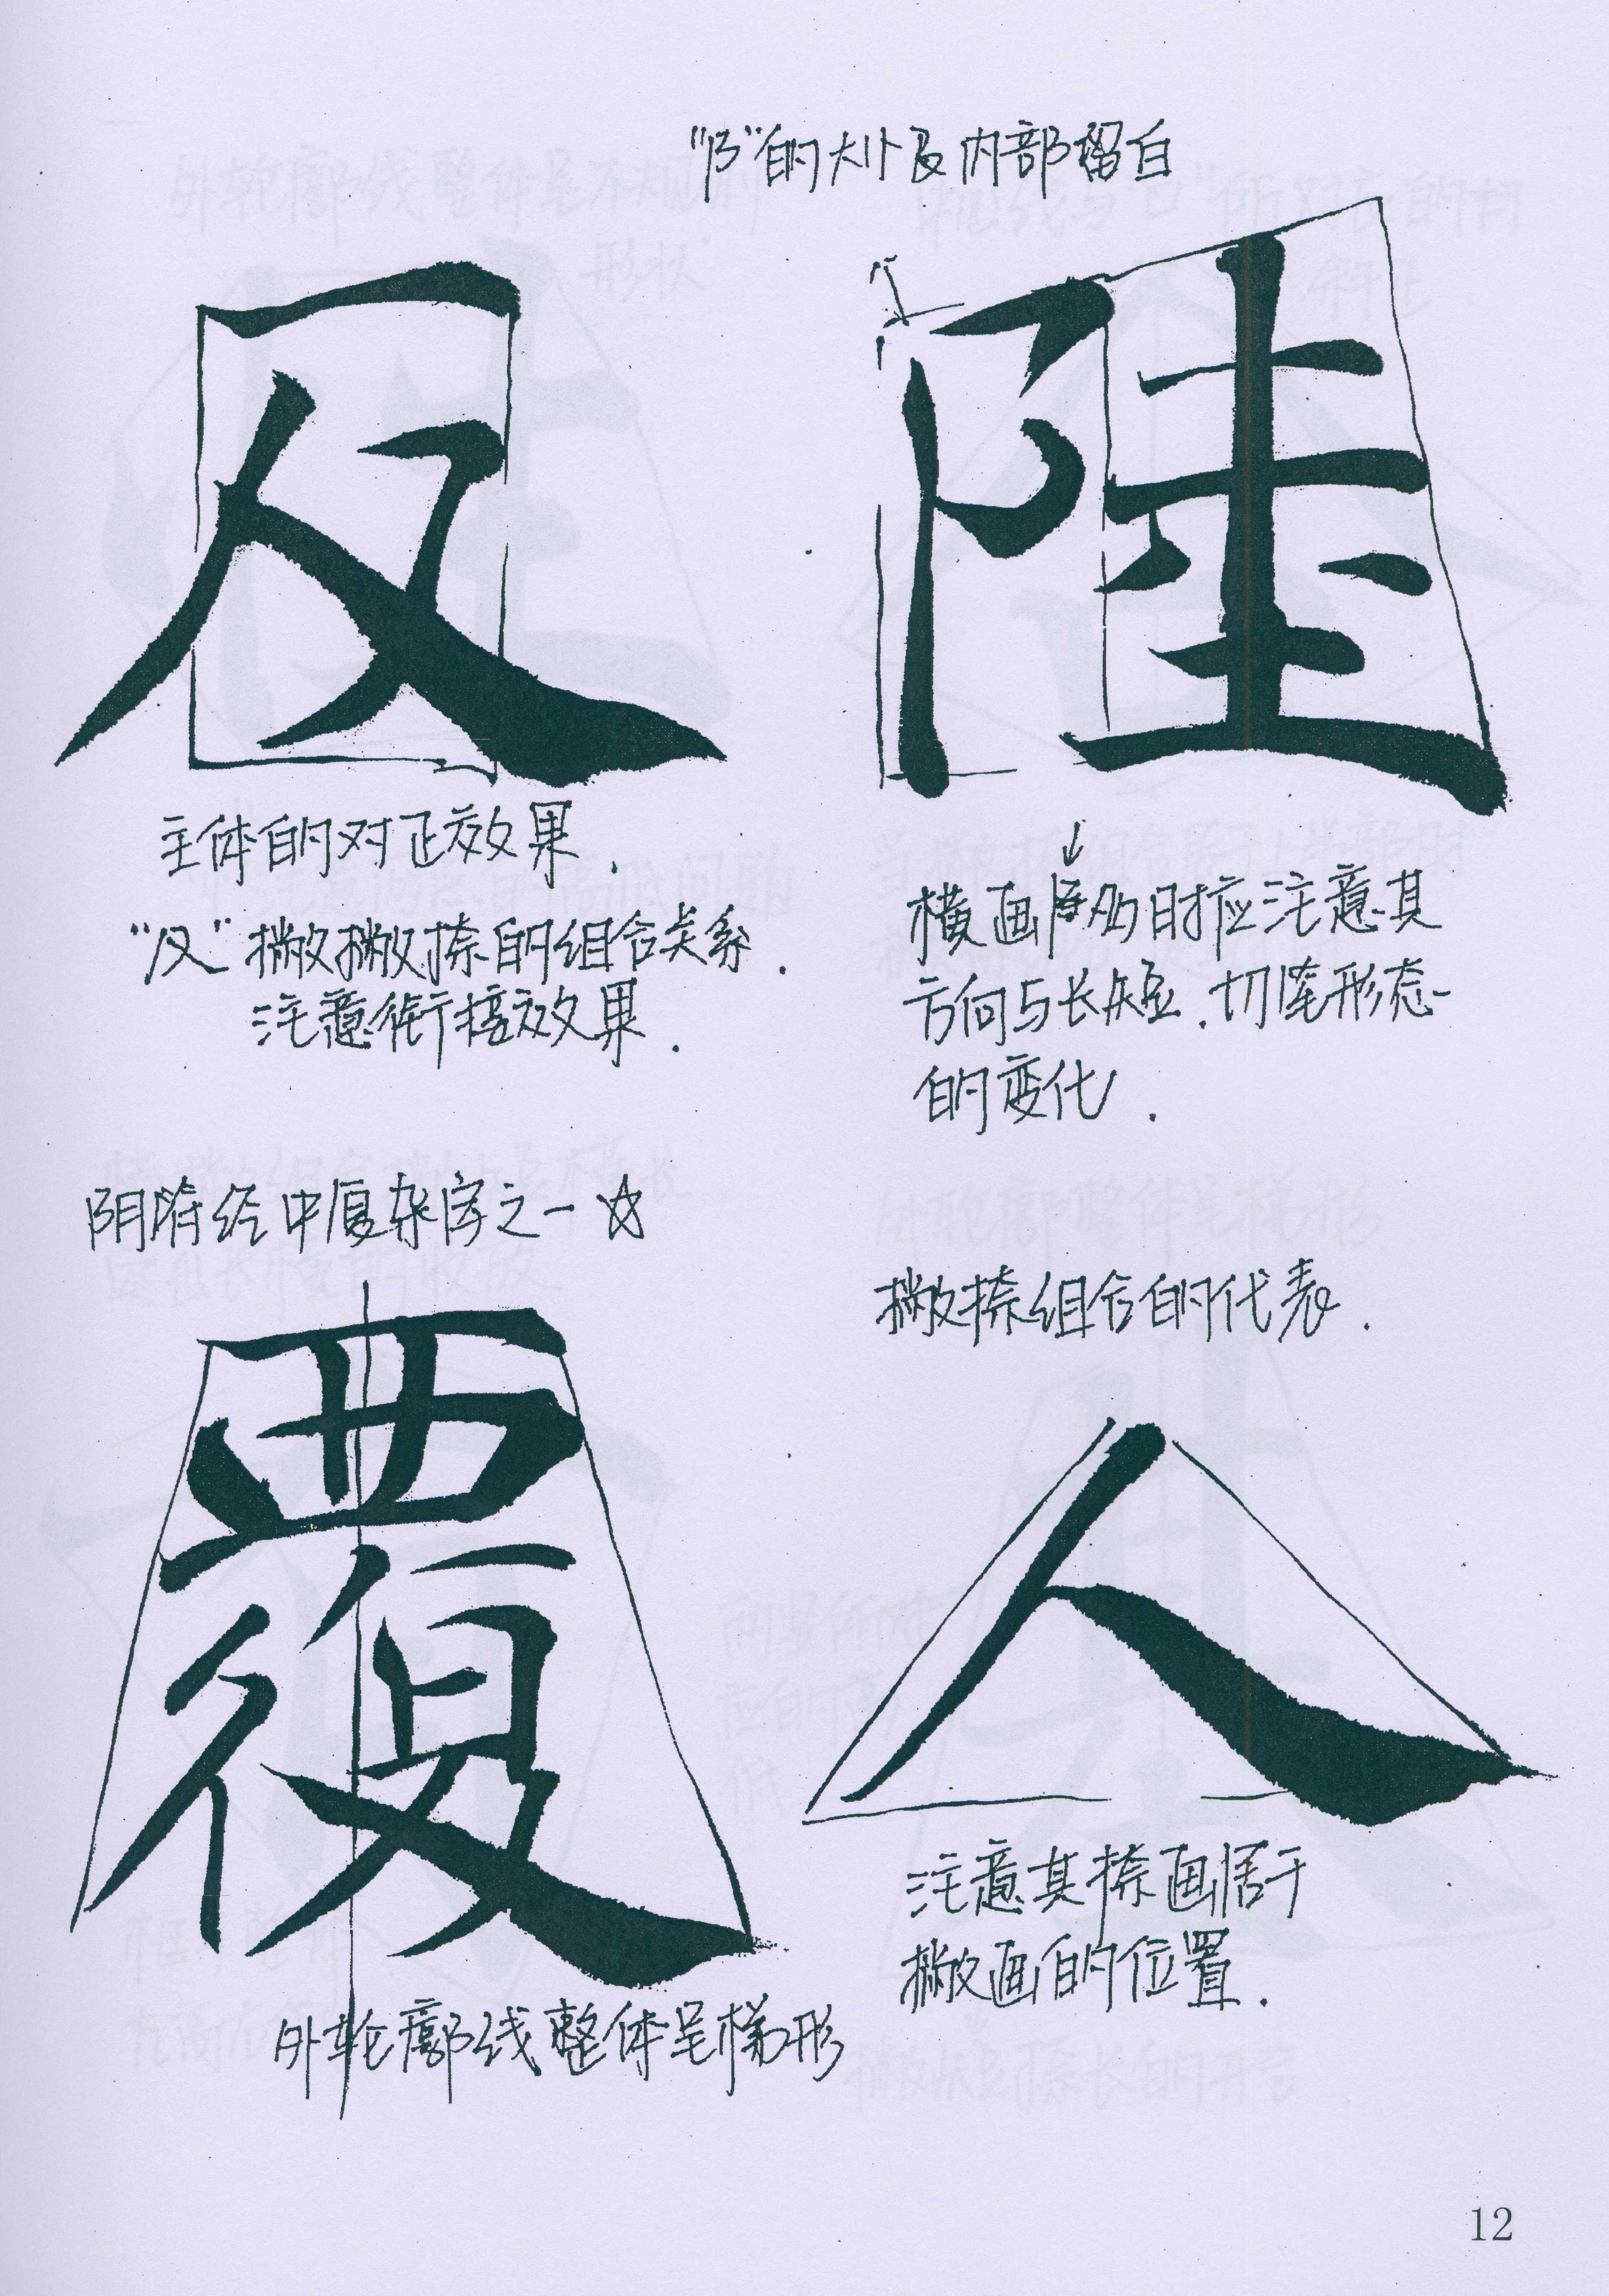 "阝"的大小及内部留白
反 陸
主体的对正效果.
撇撇捺的组合关系.
注意衔接效果.
横画居多时应注意其
方向与长短.切形态
的变化.
阴符经中复杂字之一☆
覆
外轮廓线整体呈梯形
撇捺组合的代表.
人
注意其捺画居于
撇画的位置.
12